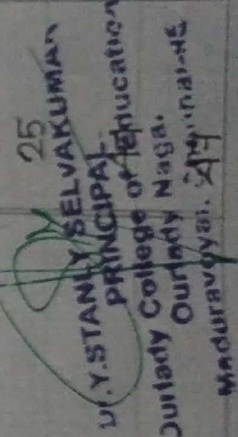 25
Dr.Y.STANLY SELVAKUMAR
PRINCIPAL
Ourlady College of Education
Ourlady Nagar
Maduravoyal,